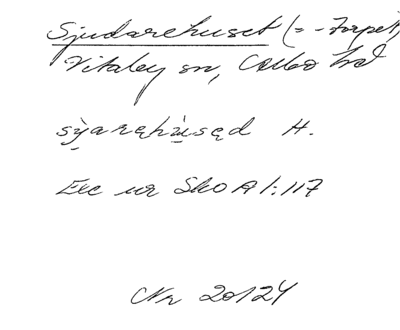 Sjudarehuset (= -Torpet,
Vittaby sn, Albo hd
sỳarąhùsąd H.
Exc ur SkOA 1:117
Nr 20124